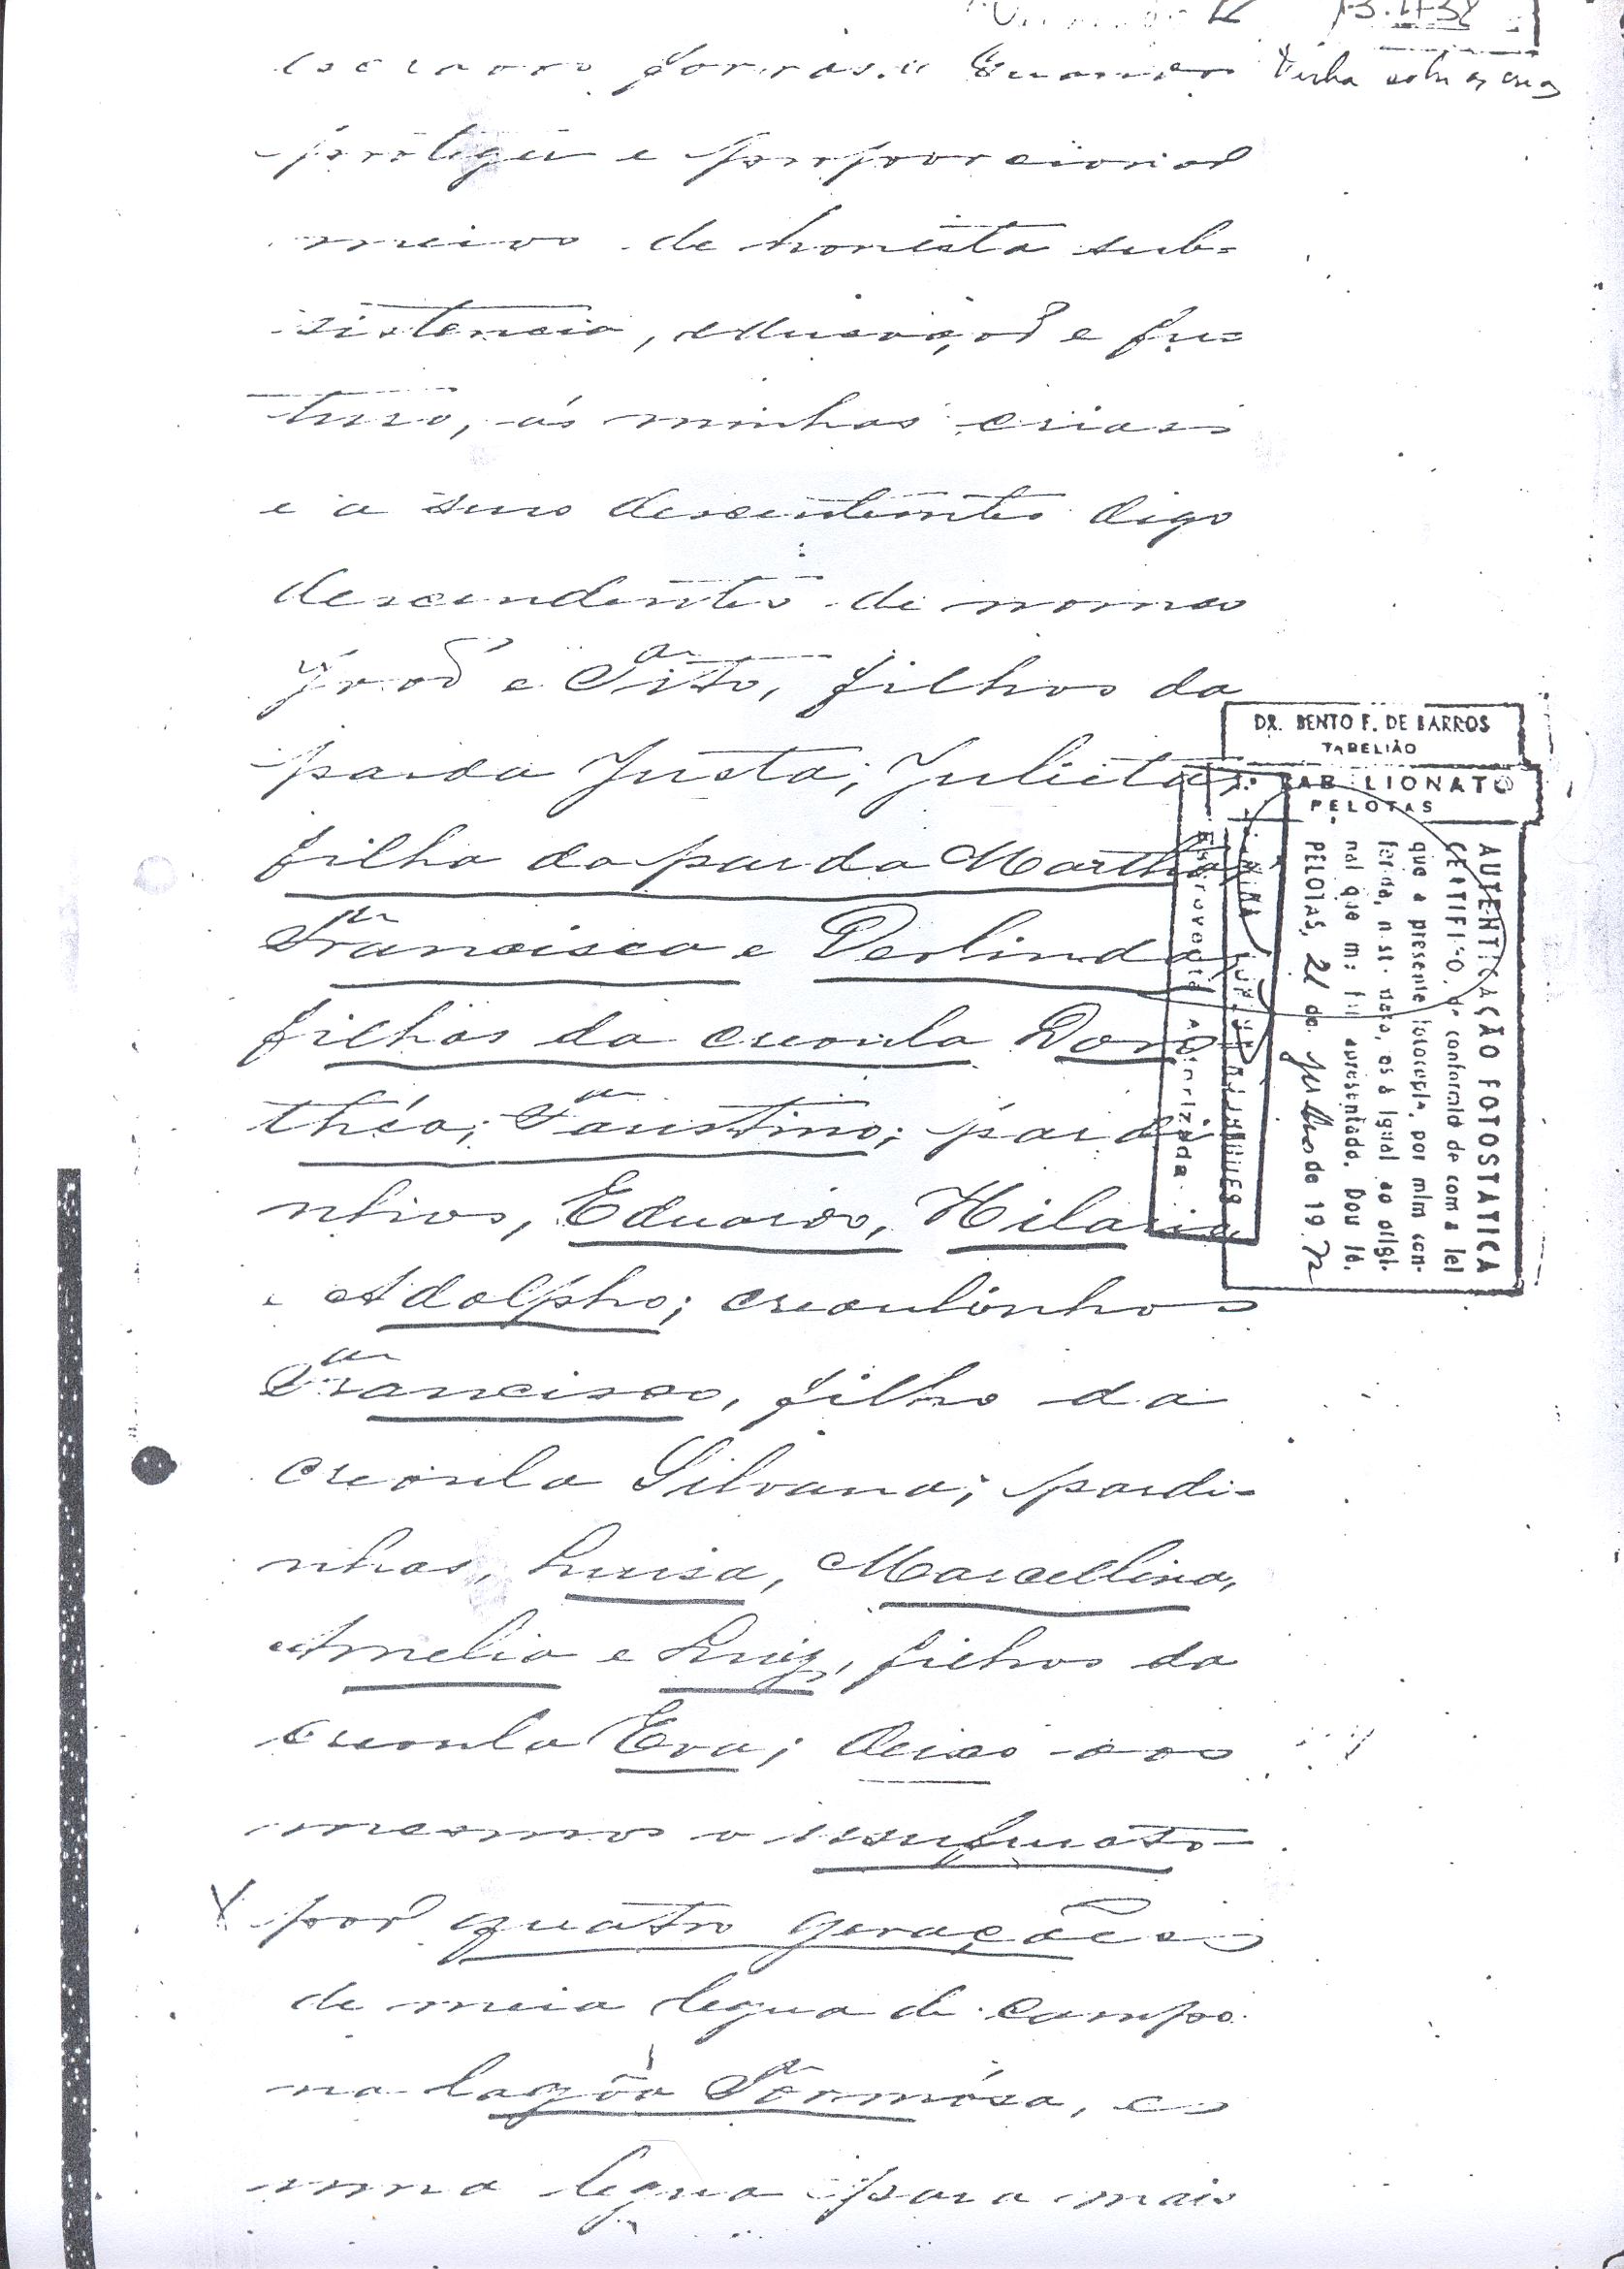 13.11-38
escravos forros." Querendo
Ficha sobre as crias
proteger e proporcionar
meios de honesta sub=
sistencia, educação e fu=
turo, ás minhas crias
e a seus descententes digo
descendentes de nomes
João e Tito, filhos da
parda Justa; Julieta,
filha da parda Martha;
Francisca e Deolinda,
filhas da creoula Doro
théa; Faustino; pardi
nhos, Eduardo, Hilaria
e Adolpho; creoulinhos
Francisco, filho da
creoula Silvana; pardi-
nhas, Luisa, Marcellina,
Amelia e Luiz, filhos da
creoula Eva; deixo aos
mesmos o usufructo
X por quatro gerações
de meia legua de campo
na lagôa Formósa, e
uma legua para mais
DR. BENTO F. DE BARROS
TABELIÃO
TABELIONATO
PELOTAS
AUTENTICAÇÃO FOTOSTATICA
CERTIFICO, de conformidade com a lei
que a presente fotocopia, por mim con-
ferida, nesta data, está igual ao origi-
nal que me foi apresentado. Dou fé.
PELOTAS, 21 de julho de 1972
Escrevente Autorizada